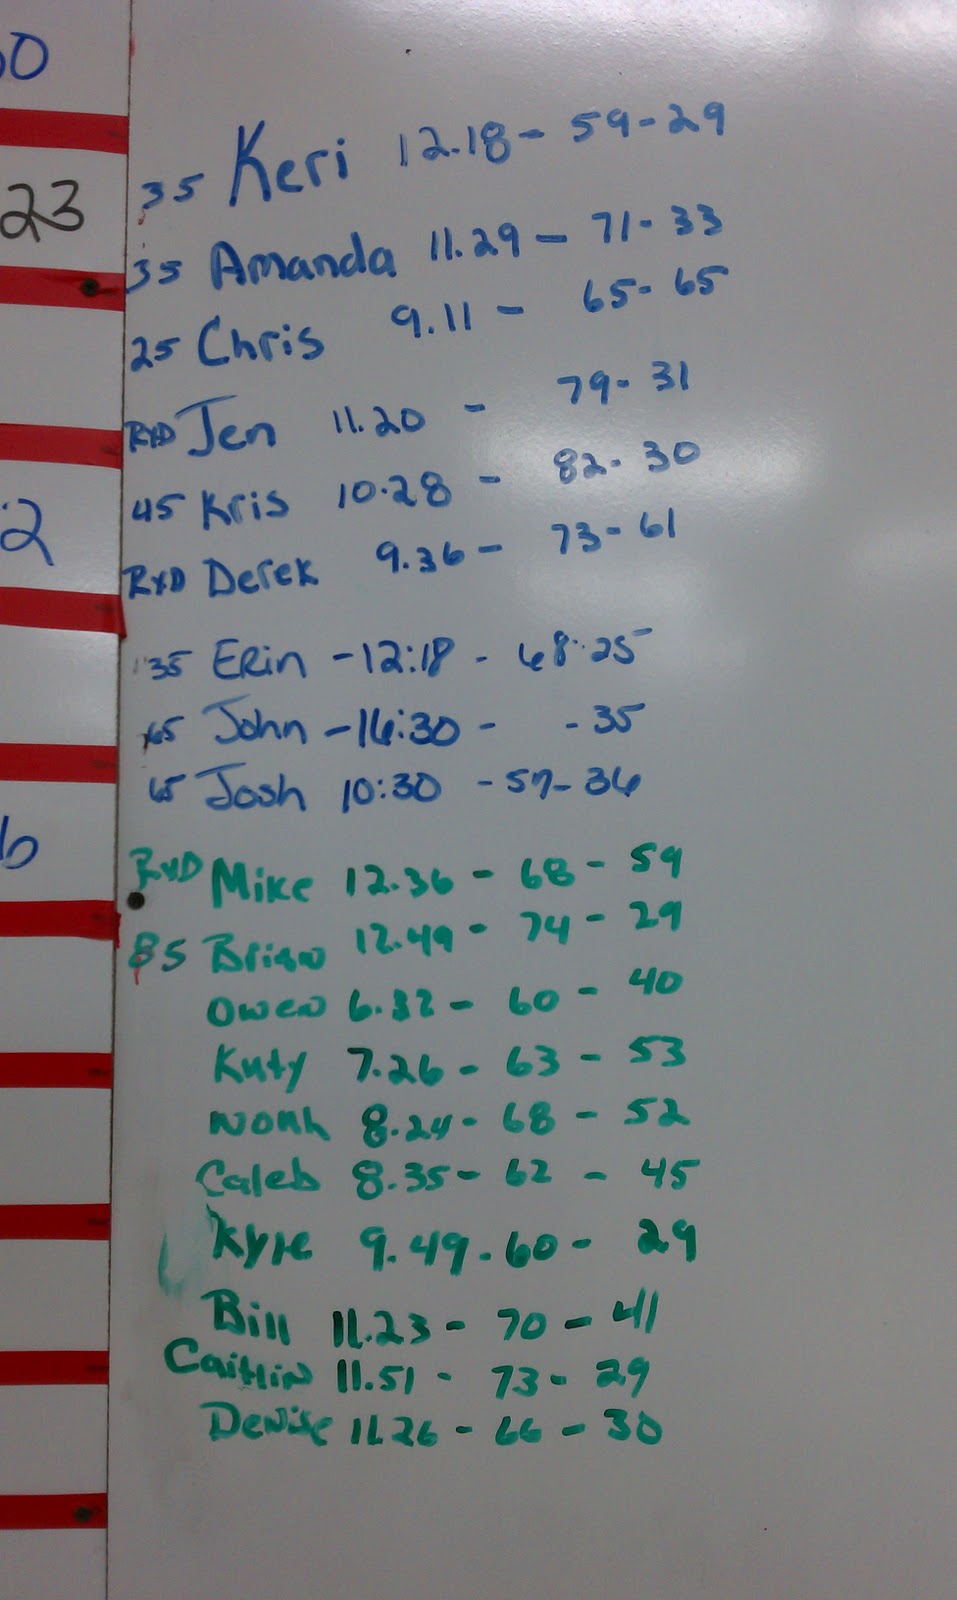 50
23
2
6
35 Keri 12.18 - 59 - 29
35 Amanda 11.29 - 71 - 33
25 Chris 9.11 - 65 - 65
RXD Jen 11.20 - 79 - 31
45 Kris 10.28 - 82 - 30
RXD Derek 9.36 - 73 - 61
35 Erin - 12:18 - 68 - 25
65 John - 16:30 - - 35
65 Josh 10:30 - 57 - 36
RXD Mike 12.36 - 68 - 59
85 Brian 12.49 - 74 - 29
Owen 6.32 - 60 - 40
Kuty 7.26 - 63 - 53
Noah 8.24 - 68 - 52
Caleb 8.35 - 62 - 45
Kyle 9.49 - 60 - 29
Bill 11.23 - 70 - 41
Caitlin 11.51 - 73 - 29
Denise 11.26 - 66 - 30